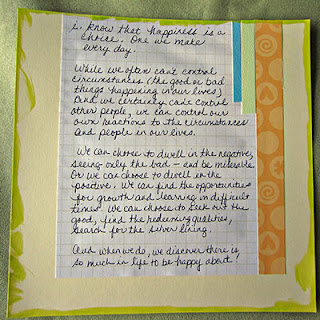 i. know that happiness is a
choice. One we make
every day.
While we often can't control
circumstances (the good or bad
things happening in our lives)
And we certainly can't control
other people, we can control our
own reactions to the circumstances
and people in our lives.
We can choose to dwell in the negative,
seeing only the bad - and be miserable.
Or we can choose to dwell in the
positive. We can find the opportunities
for growth and learning in difficult
times. We can choose to seek out the
good, find the redeeming qualities,
search for the silver lining.
And when we do, we discover there is
so much in life to be happy about